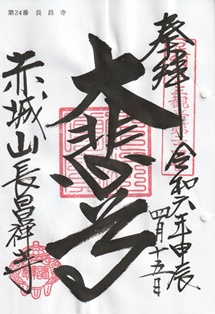 第24番 長昌寺
奉拝
令和六年甲辰
四月十五日
大悲
赤城山長昌禅寺